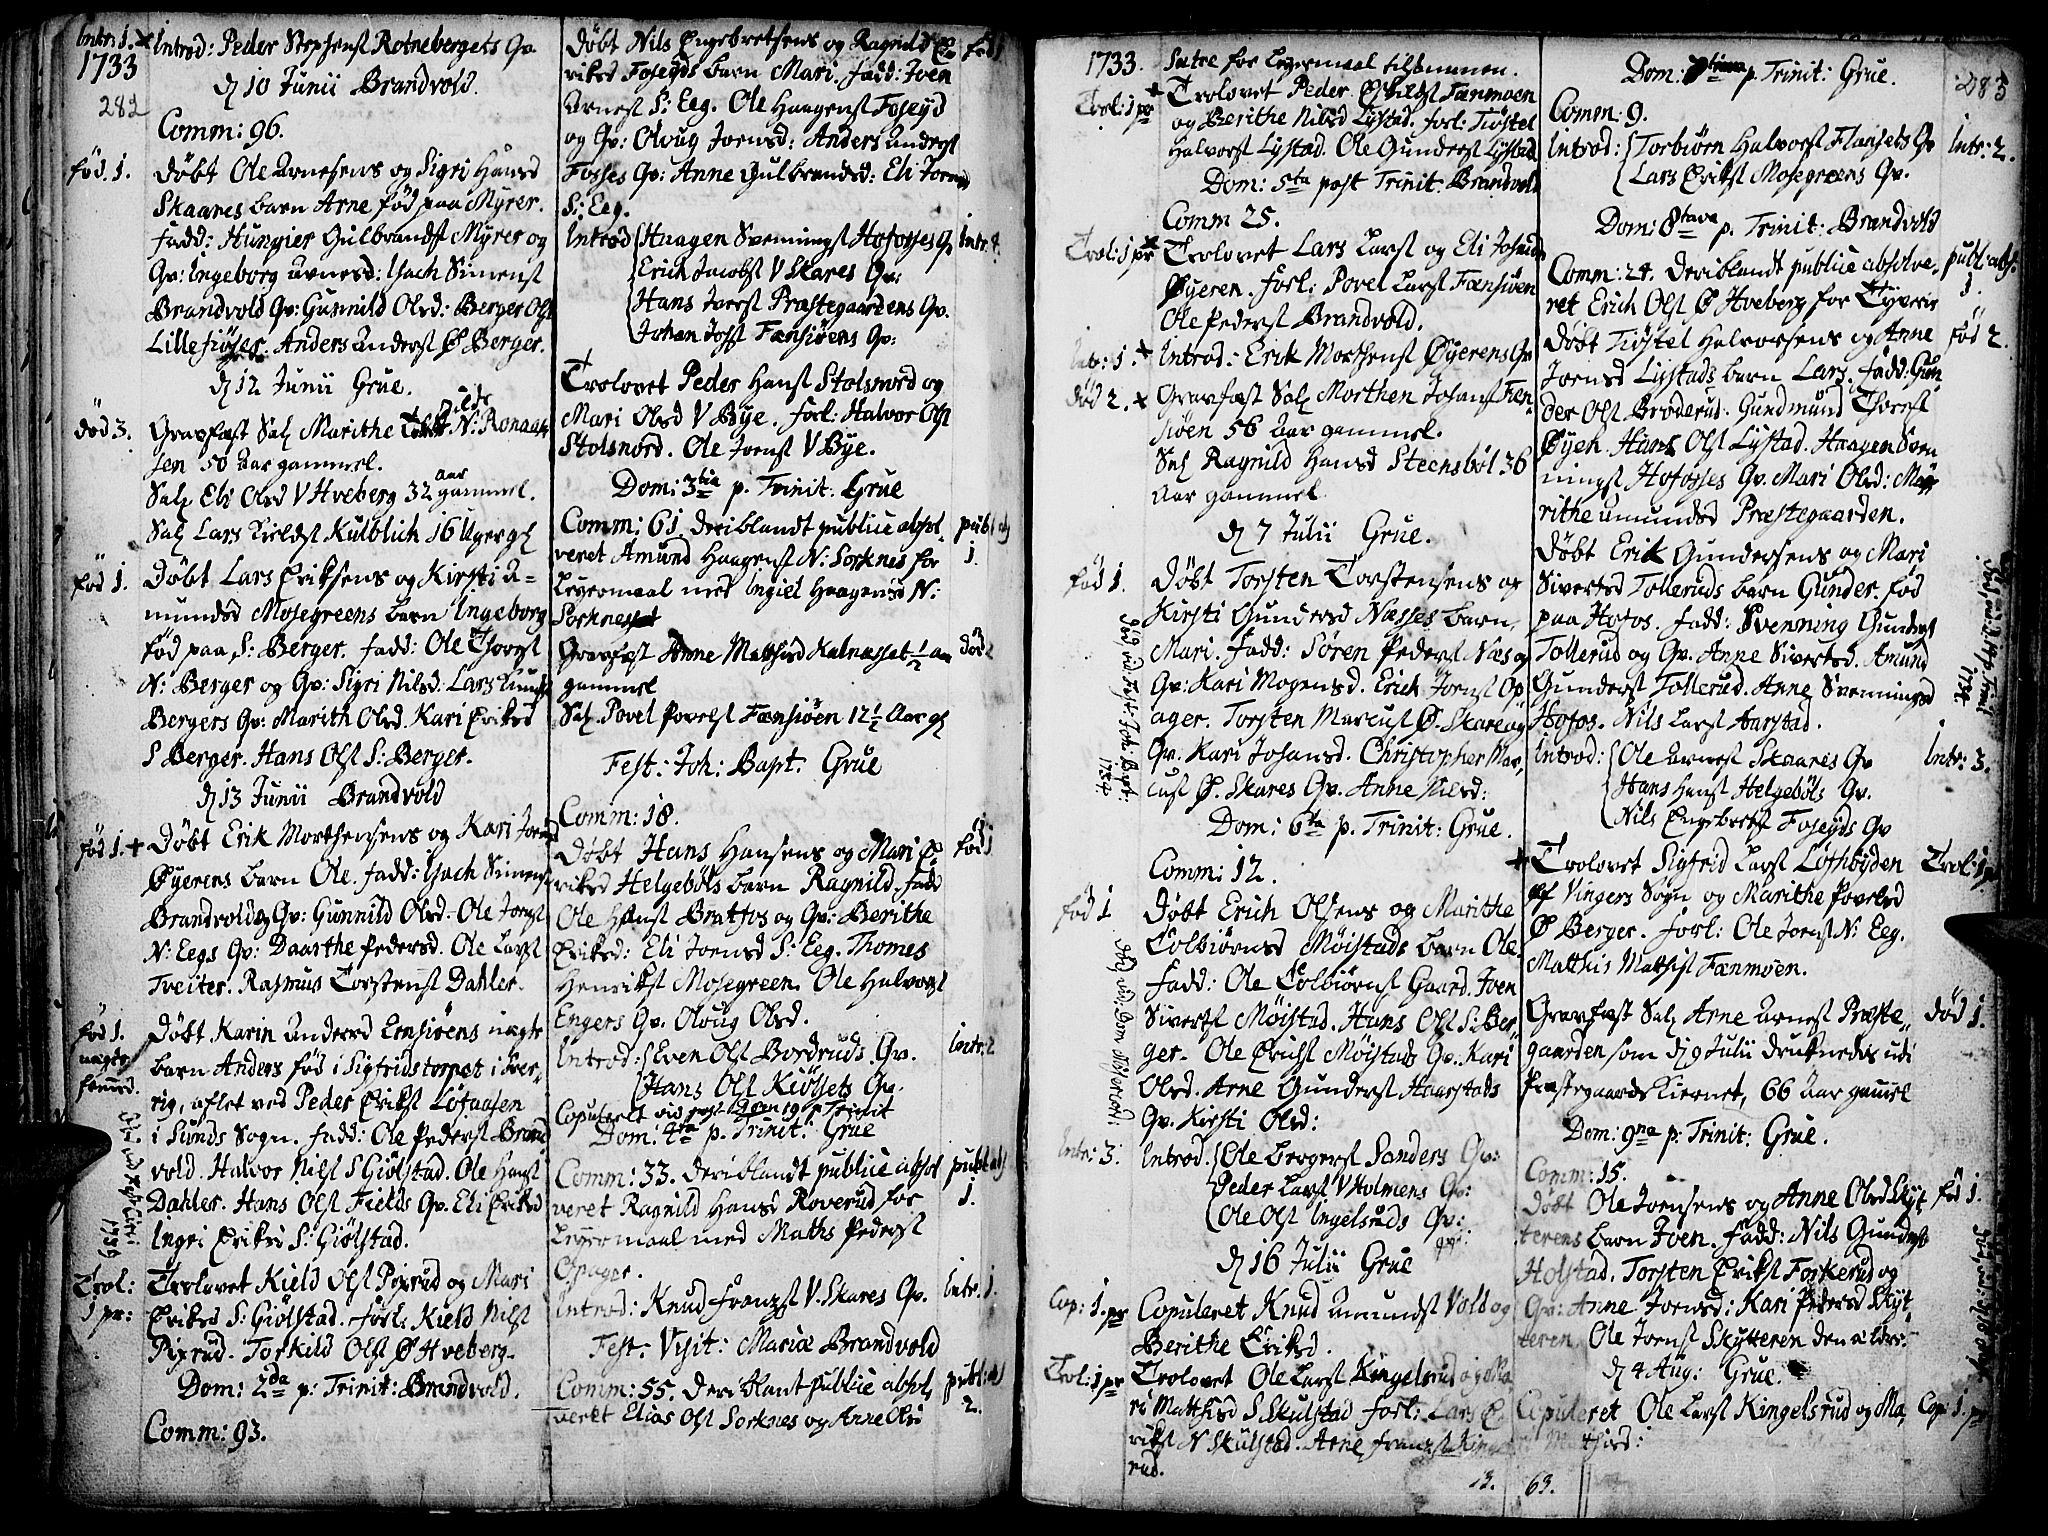 Intr: 1. Introd: Peder Stephens Rotnebergets Qv.
1733
282
d 10 Junii Brandvold.
Comm: 96.
fød. 1. Døbt Ole Arnesens og Sigri Hansd
Skaares barn Arne fød paa Myrer.
fadd: Gulbrands Myrer og
Qv: Ingeborg Arnesd: Isach Simens
Brandvold Qv: Gunnild Olsd: Berger Ols
Lillesiøser. Anders Anders Ø Berger.
d 12 Junii Grue.
død 3. Gravfæst Sal Marithe N: Ronaas
sen 50 Aar gammel.
Sal Eli Olsd V Hveberg 32 aar gammel.
Sal Lars Kields Kulblich 16 Uger gl
fød 1. Døbt Lars Eriksens og Kirsti A-
mundsd Mosegreens barn Ingeborg
fød paa S: Berger. fadd: Ole Thores
N: Berger og Qv: Sigri Nilsd: Lars Knuds
Bergers Qv: Marith Olsd. Kari Eriksd
S Berger. Hans Ols S: Berger.
d 13 Junii Brandvold
fød 1. + Døbt Erik Morthensens og Kari Joensd
Øyerens barn Ole. fadd: Isach Simens
Brandvold og Qv: Gunnild Olsd. Ole Joens
N: Eegs Qv: Daarthe Pedersd. Ole Lars
Tveiter. Rasmus Torstens Dahler.
fød 1. Døbt Karin Andersd Lensiøens uægte
uægte barn Anders fød i Sigfridstorpet i Sver-
rig, aflet ved Peder Eriks Løfaasen
i Sunds Sogn. fadd: Ole Peders Brand
vold. Halvor Nils S Giølstad. Ole Hans
Dahler. Hans Ols Fields Qv. Eli Eriksd
Ingri Eriksd S: Giølstad.
1739
Trol: Trolovet Kield Ols Pixrud og Mari
1 pr: Eriksd S: Giølstad. forl: Kield Nils
Pixrud. Torkild Ols Ø Hveberg.
Dom: 2da p: Trinit: Brandvold.
Comm: 93.
Døbt Nils Engebretsens og Ragnild E- fød 1
riksd Foseyds barn Mari. fadd: Joen
Arnes S: Eeg. Ole Haagens Foseyd
og Qv: Oloug Joensd: Anders Anders
Fosses Qv: Anne Gulbrandsd: Eli Joensd
S: Eeg.
Introd Haagen Svennings Hofosses Qv Intr: 4.
Erich Jacobs V Skares Qv:
Hans Ivers Præstegaardens Qv.
Johan Fænsiøens Qv:
Trolovet Peder Hans Stolsnord og
Mari Olsd V Bye. forl: Halvor Ols
Stolsnord. Ole Joens V Bye.
Dom: 3tia p. Trinit: Grue
Comm: 61 deriblandt publice absol- publ abs
veret Amund Haagens N: Sorknes for 1.
Leyermaal med Ingiel Haagensd N:
Sorknes
Gravfæst Anne Matthisd Kalnæsset ½ aar død 2
gammel
Sal. Povel Povels Fænsiøen 12 ½ Aar gl
Fest: Joh: Bapt. Grue
Comm: 18.
Døbt Hans Hansens og Mari E- fød 1
riksd Helgebøls barn Ragnild. fadd
Ole Hans Bratfos og Qv: Berithe
Eriksd: Eli Joensd S: Eeg. Thomes
Henriks Mosegreen. Ole Halvors
Engers Qv. Oloug Olsd.
Introd: Even Ols Bordruds Qv. Intr: 2
Hans Ols Kiølsets Qv.
Dom: 4ta p. Trinit: Grue
Comm: 33. deriblandt publice absol publ abs
veret Ragnild Hansd Roverud for 1.
Leyermaal med Maths Peders
Opager.
Introd: Knud Franz V. Skares Qv. Intr: 1.
Fest: Visit: Mariæ Brandvold
Comm: 55. deriblant publice absol publ: abs
veret Elias Ols Sorknes og Anne Olsd 2.
1733. Sætre for Leyermaal tilsammen.
Trol: 1 pr + Trolovet Peder Eskilds Fænmoen
og Berithe Nilsd Lystad. forl: Tiøstel
Halvors Lystad. Ole Gunders Lystad
Dom: 5ta post Trinit: Brandvold
Comm 25.
Trol: 1 pr Trolovet Lars Lars og Eli Johansd
Øyeren. forl: Povel Lars Fænsiøen
Ole Peders Brandvold.
Intr: 1 + Introd: Erik Morthens Øyerens Qv
død 2. Gravfæst Sal Morthen Johans Fæn-
siøen 56 Aar gammel.
Sal Ragnild Hansd Steensbøl 36
Aar gammel
d 7 Julii Grue.
fød 1. Døbt Torsten Torstensens og
Kirsti Gundersd Næsses barn
Mari. fadd: Søren Peders Næs og
Qv: Kari Mogensd. Erich Joens Op
ager. Torsten Marcus Ø. Skare og
Qv. Kari Johansd. Christopher Mar-
cus Ø. Skares Qv. Anne Nilsd:
1734
Dom: 6ta p. Trinit: Grue.
Comm: 12.
fød 1 Døbt Erich Olsens og Marithe
Colbiørnsd Møistads barn Ole.
fadd: Ole Colbiørns Gaard. Joen
Siverts Møistad. Hans Ols S: Ber-
ger. Ole Erichs Møistads Qv: Kari
Olsd. Arne Gunders Haarstads
Qv. Kirsti Olsd:
Intr: 3. Introd. Ole Bergers Sanders Qv:
Peder Lars V Holmens Qv:
Ole Ols Ingelsruds Qv:
d 16 Julii Grue
Cop: 1. pr Copuleret Knud Amunds Vold og
Berithe Eriksd.
Trol: 1 pr Trolovet Ole Lars Kingelsrud og Ma
ri Matthisd S Skulstad forl: Lars E-
riks N Skulstad. Arne Franz Kingels
rud.
13.
Dom: 7tima p. Trinit: Grue. 283
Comm: 9.
Introd: Torbiørn Halvors Flansets Qv Intr: 2.
Lars Eriks Mosegreens Qv.
Dom: 8tava p. Trinit: Brandvold
Comm: 24. deriblandt publice absolve- publ: abs:
ret Erich Ols Ø Hveberg for Tyverie 1.
Døbt Tiøstel Halvorsens og Anne fød 2.
Joensd Lystads barn Lars. fadd: Gun-
der Ols Broderud. Gundmund Thores
Øyen. Hans Ols Lystad. Haagen Sven
nings Hofosses Qv. Mari Olsd: Ma-
rithe Amundsd Præstegaarden.
Døbt Erik Gundersens og Mari
Sivertsd Tolleruds barn Gunder. fød
paa Hofos. fadd: Svenning Gunders
Tollerud og Qv. Anne Sivertsd. Amund
Gunders Tollerud. Anne Svenningsd
Hofos. Nils Lars Aarstad.
1734
Introd: Ole Arnes Skaares Qv Intr: 3.
Hans Hans Helgebøls Qv.
Nils Engebrets Foseyds Qv
+ Trolovet Sigfrid Lars Løfhøyden Trol: 1 pr
af Vingers Sogn og Marithe Povelsd
Ø Berger. forl: Ole Joens N: Eeg.
Matthis Matthis Fænmoen.
Gravfæst Sal Arne Arnes Præste- død 1.
gaarden, som d 9 Julii druknedes udi
Præstegaards Kiernet, 66 Aar gammel
Dom: 9na p: Trinit: Grue.
Comm: 15.
Døbt Ole Joensens og Anne Olsd Skyt fød 1.
terens barn Joen. fadd: Nils Gunders
Hofstad. Torsten Eriks Foskerud og
Qv: Anne Joensd: Kari Pedersd Skyt
teren. Ole Joens Skytteren den ældre.
d 4 Aug: Grue.
Copuleret Ole Lars Kingelsrud og Ma Cop: 1. pr
thisd:
63.